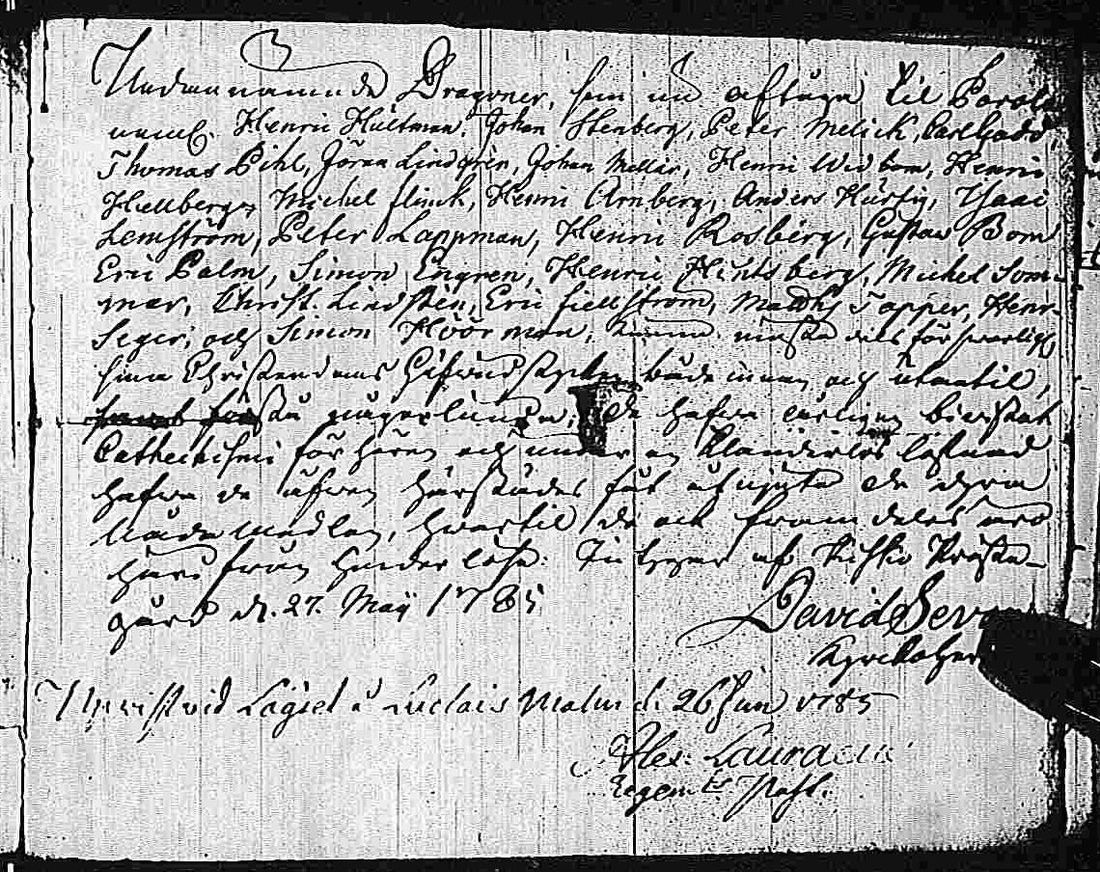 Undannämnde Dragoner, som nu aftåga til Parola
neml. Henric Hultman, Johan Stenberg, Peter Melick, Carl Gadd,
Thomas Pihl, Jöran Lindgren, Johan Mellin, Henric Widbom, Henric
Hellberg, Michel Flinck, Henric Arnberg, Anders Hurtig, Isaac
Lemström, Peter Lappman, Henric Rosberg, Gustav Bom
Eric Palm, Simon Engren, Henric Flintsberg, Michel Som-
mar, Christ. Lindsten, Eric Fiellström, Matths Topper, Henr.
Seger, och Simon Höörman, kunna
sina Christendoms stycken både innan och utantil,
de hafva årligen bivistat
Cathechismi förhören och under en klanderlös lefnad
hafva de äfven härstädes fått åtniuta de dyra
Nådemedlen, hvartil de ock framdeles äro
härifrån hinderlöse. Betygar af Kisko Prästa-
gård d. 27. Maij 1785
David Dev
Kyrckoher
Upvist vid Lägret å Luctais Malm d. 26 Jun 1785
Alex: Lauraeus
Regemts Past.